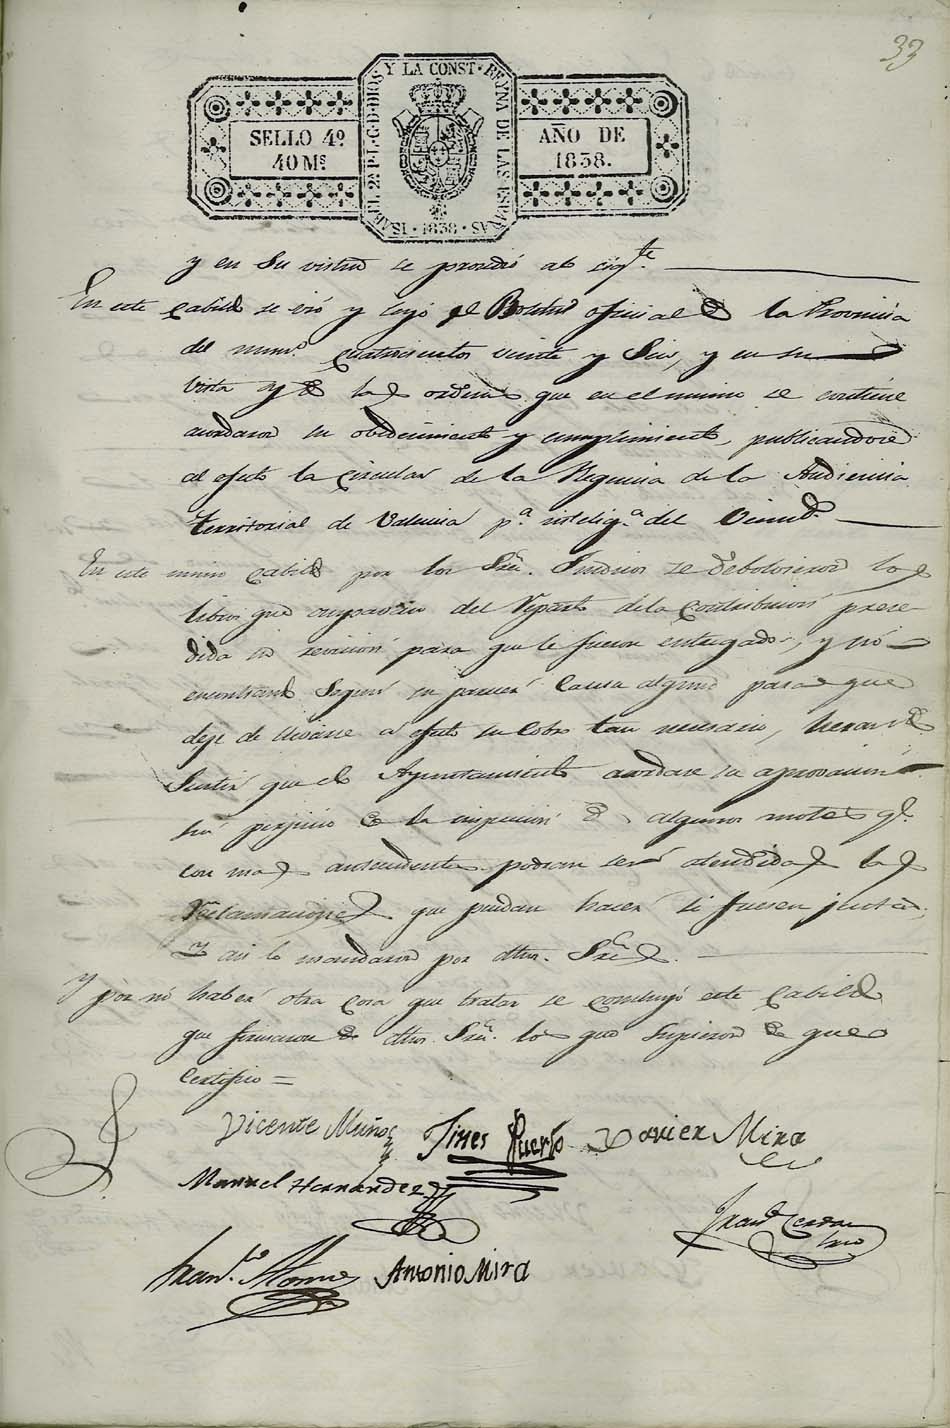 33
SELLO 4º
40 Mˢ
YSABEL 2ª P.L.G.D.DIOS Y LA CONST. REYNA DE LAS ESPAÑAS
· 1838 ·
AÑO DE
1838.
y en su virtud se prosedió al sigᵗᵉ
En este Cabildo se vió y leyó el Boletin oficial de la Provincia
del numº quatrocientos veinte y Seis, y en su
vista y de las ordenes que en el mismo se contiene
acordaron su obedecimiento y cumplimiento, publicandose
al efecto la Circular de la Regencia de la Audiencia
territorial de Valencia pª inteligª del Vecindº
En este mismo Cabildo por los Srs. Sindicos se debolvieron los
libros que del Reparto de la Contribucion prece
dida su revicion para que le fueron entregados, y nó
encontrando Segun su parecer Causa alguna para que
deje de llevarse á efecto su Cobro tan necesario,
Sentir que el Ayuntamiento acordare su aprovacion
sin perjuicio de la inspeccion de algunos motes qe.
con mas antecedentes podran ser atendidas las
Reclamaciones que puedan hacer si fuesen justas,
y asi lo mandaron por dthos. Sres.
y por nó haber otra cosa que tratar se concluyó este Cabildo
que firmaron de dthos Srs. los que supieron de que
Certifico =
Vicente Muñoz
Jines Puerto
Xavier Mira
Manuel Hernandez
Franᶜᵒ Cerdan
Franᶜᵒ
Antonio Mira